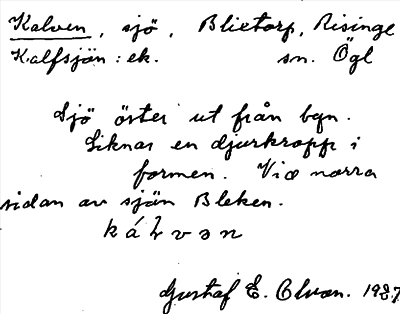 Kalven, sjö, Blietorp, Risinge
Kalfsjön: ek. sn. Ögl
Sjö öster ut från bgn.
Liknar en djurkropp i
formen. Vid norra
sidan av sjön Bleken.
kálvən
Gustaf E. Olson. 1927